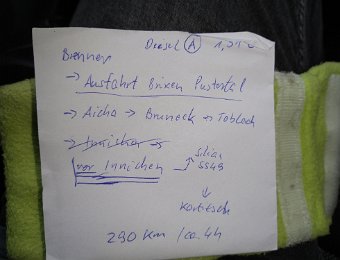 Diesel Ⓐ 1,31€
Brenner
→ Ausfahrt Brixen Pustertal
→ Aicha → Bruneck → Toblach
→ Innichen →
vor Innichen → Silian
SS49
↓
Kartitsch
290 km / ca. 4h